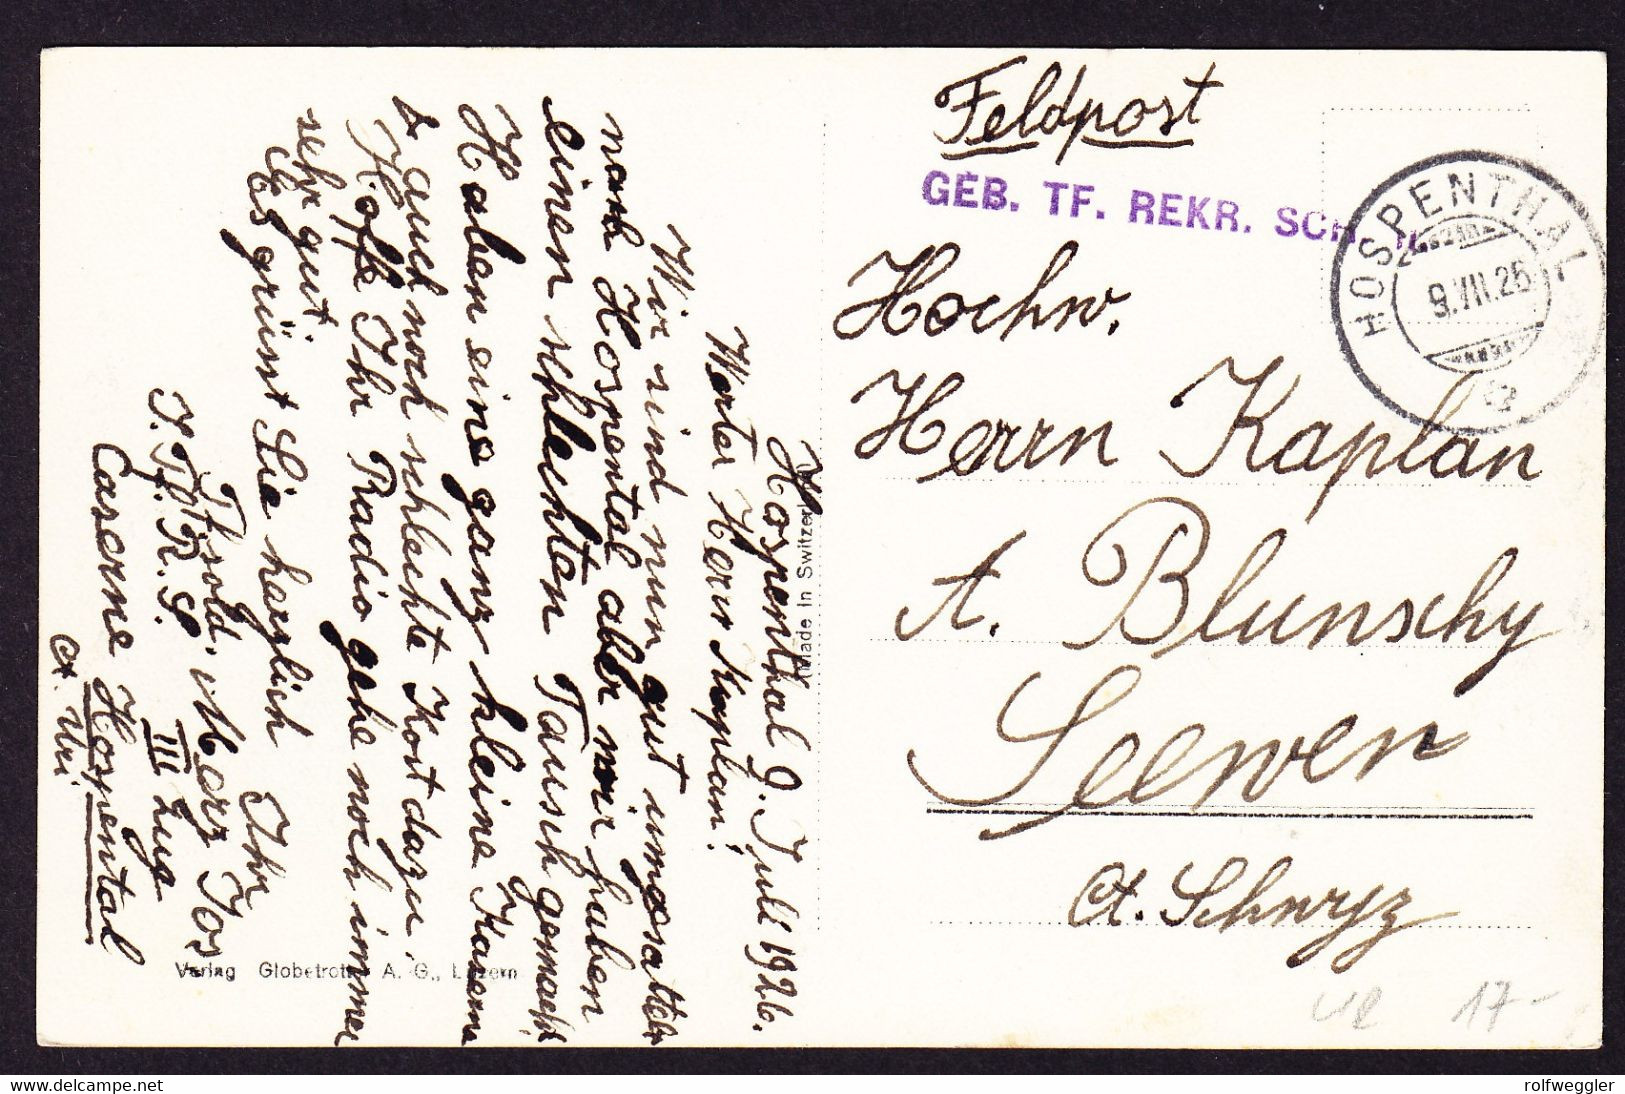 Feldpost
GEB. TF. REKR. SCH
HOSPENTHAL
9.VII.26
Hochw.
Herrn Kaplan
A. Blunschy
Seewen
Ct. Schwyz
Hospenthal 9. Juli 1926.
Werter Herr Kaplan!
Wir sind nun gut umgesattelt
nach Hospental aber wir haben
einen schlechten Tausch gemacht
Haben eine ganz kleine Kaserne
& auch noch schlechte Kost dazu!
Hoffe Ihr Radio gehe noch immer
sehr gut.
Es grüsst Sie herzlich
Ihr
Tfsold. Merz Jos
T. Tf. R. S. III Zug
Caserne Hospental
Ct. Uri
Made in Switzerland
Verlag Globetrotter A. G., Luzern
17-
rolfweggler